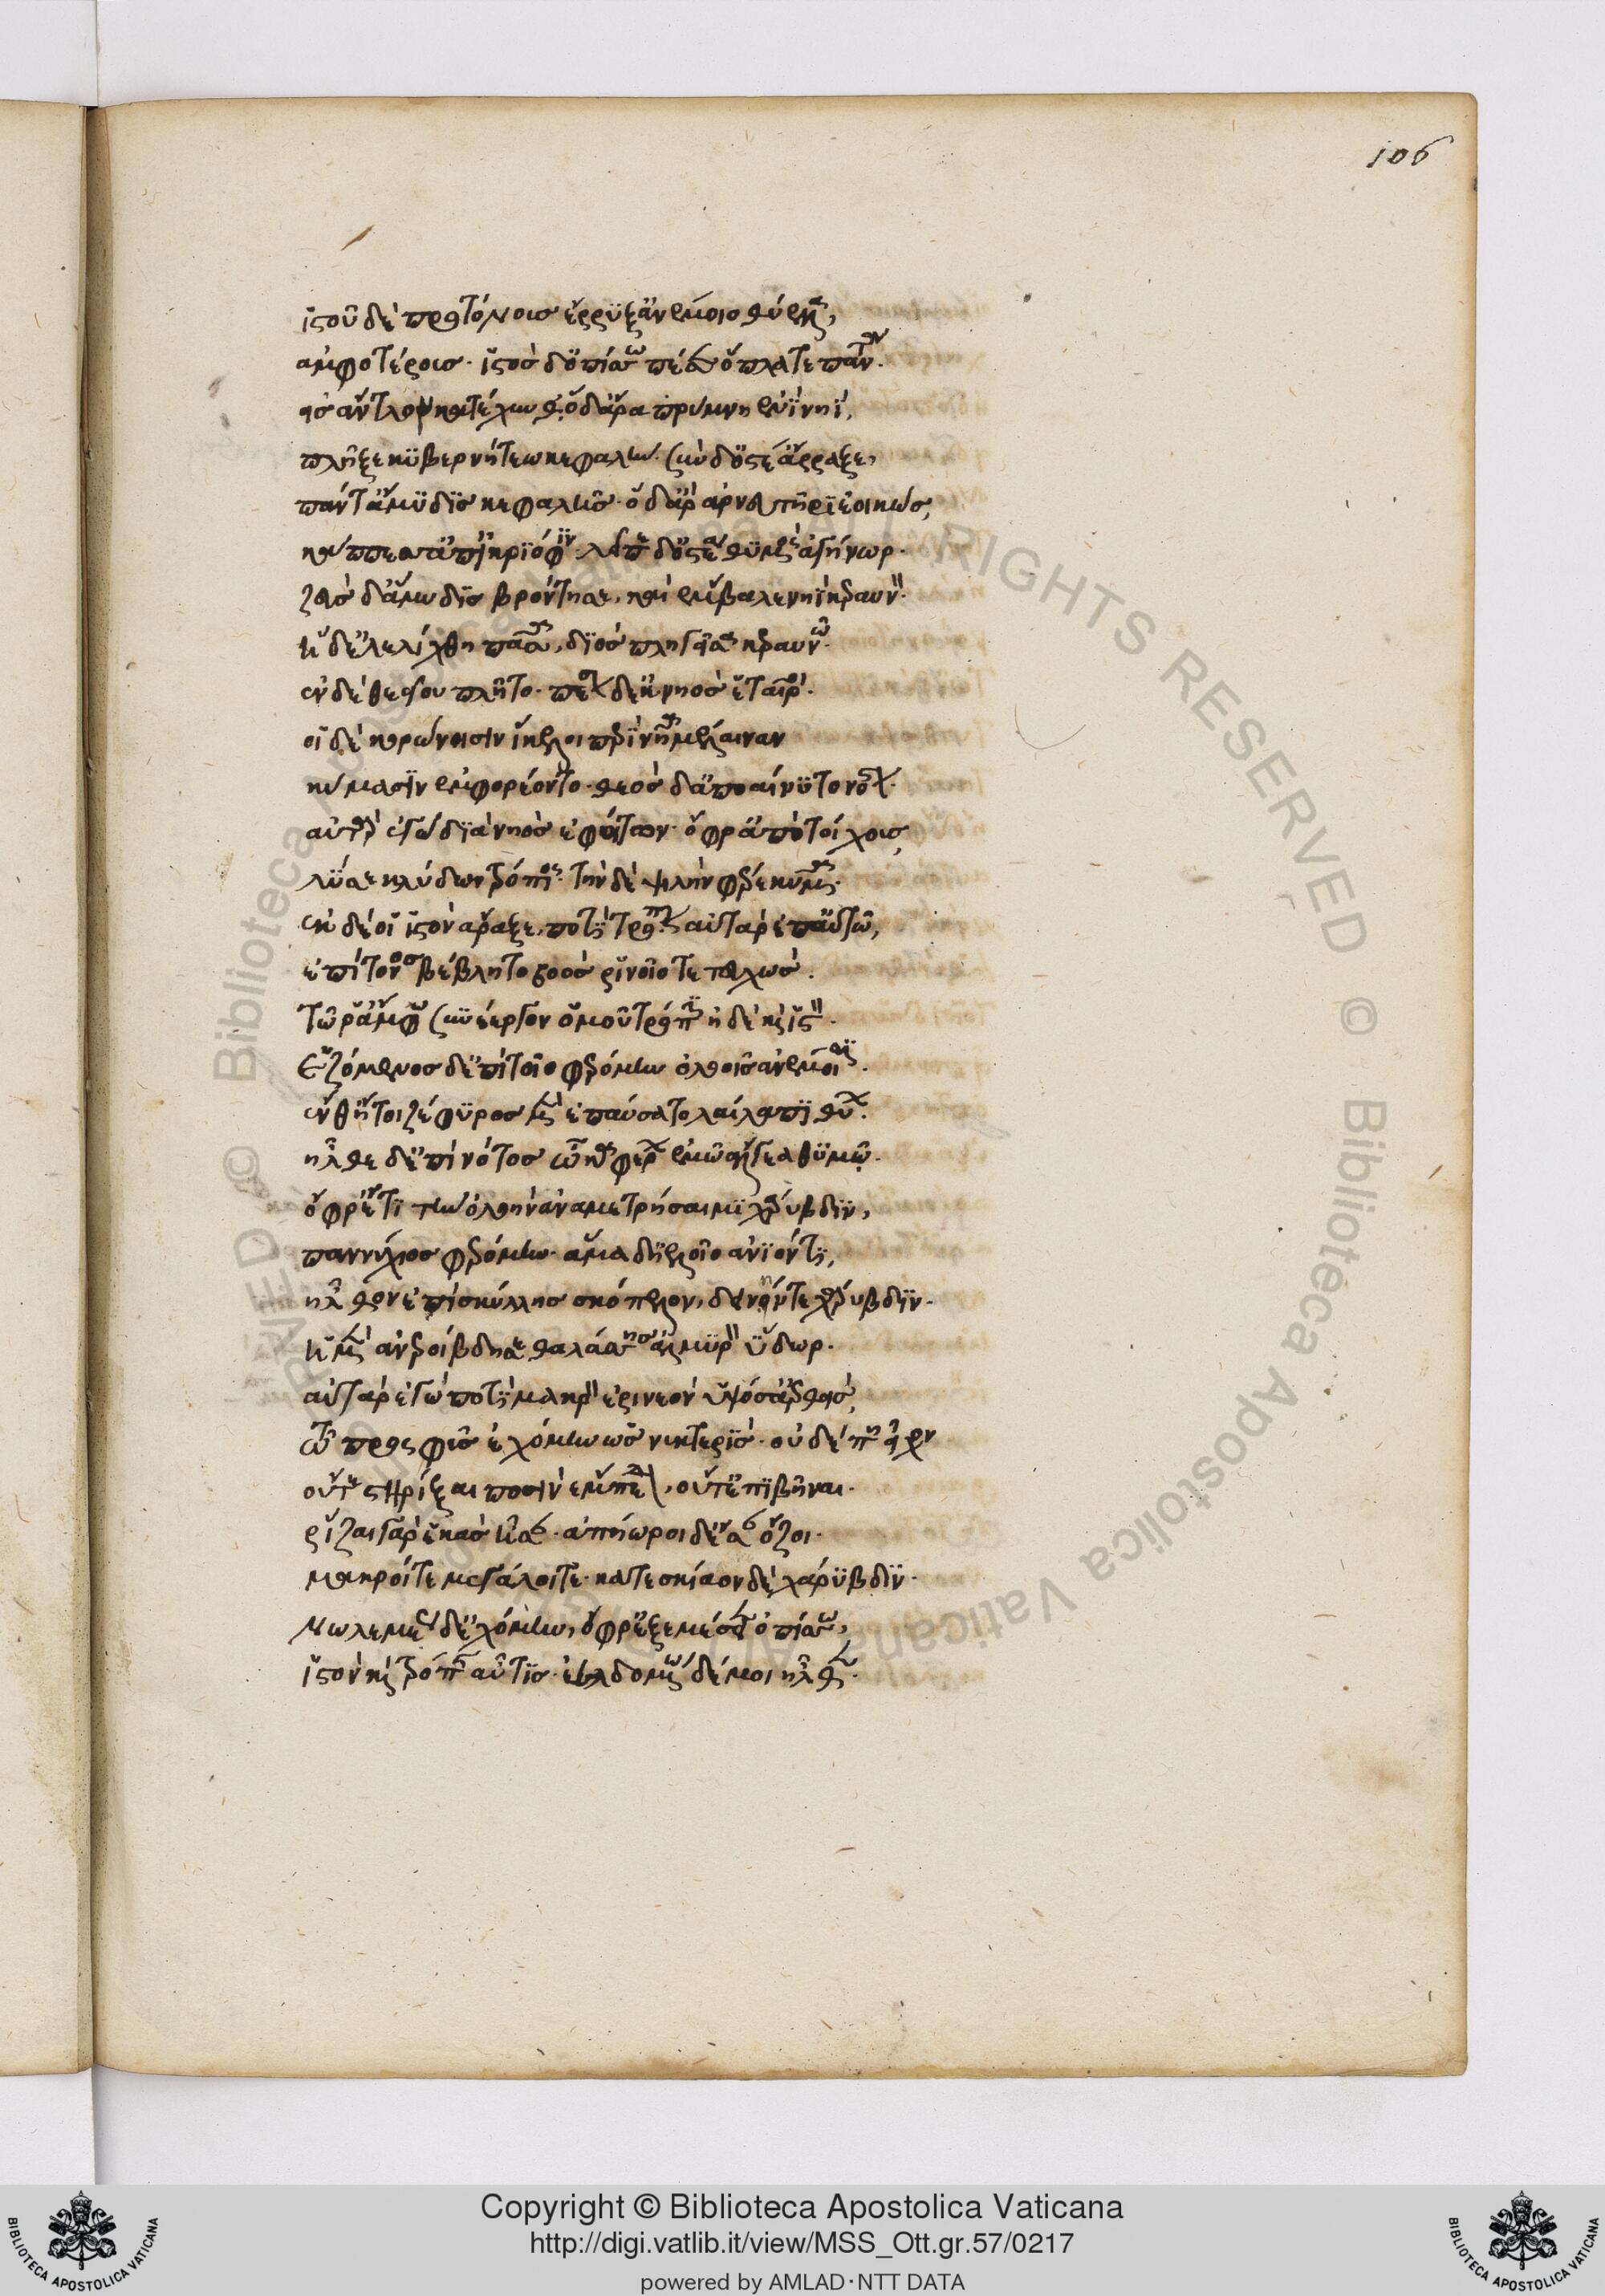 ἱστοῦ δὲ προτόνοισ ἔρρϋξ' ἀνέμοιο θύελλα,
ἀμφοτέροισ· ἱστὸσ δ' ὀπίσω πέσεν ὅπλα τε πάντα.
εἰσ ἄντλον κατέχυνθ'· ὁ δ' ἄρα πρύμνῃ ἐνὶ νηῒ,
πλῆξε κυβερνήτεω κεφαλήν. σὺν δ' ὀστέ' ἄρραξε,
πάντ' ἄμυδισ κεφαλῆσ· ὁ δ' ἄρ' ἀρνευτῆρι ἐοικώσ,
κάππεσ' ἀπ' ἰκριόφιν· λίπε δ' ὀστέα θυμὸσ ἀγήνωρ.
ζεὺσ δ' ἄμυδισ βρόντησε, καὶ ἔμβαλε νηῒ κεραυνόν.
ἡ δ' ἐλελίχθη πᾶσα, διὸσ πληγεῖσα κεραυνῷ.
ἐν δὲ θεείου πλῆτο· πέσον δ' ἐκ νηὸσ ἑταῖροι.
οἱ δὲ κορώνοισιν ἴκελοι περὶ νῆα μέλαιναν
κύμασιν ἐμφορέοντο· θεὸσ δ' ἀποαίνυτο νόστον.
αὐτὰρ ἐγὼ διὰ νηὸσ ἐφοίτων· ὄφρ' ἀπὸ τοίχουσ,
λῦσε κλύδων τρόπιοσ· τὴν δὲ ψιλὴν φέρε κῦμα.
ἐκ δέ οἱ ἱστὸν ἄραξε, ποτὶ τρόπιν· αὐτὰρ ἐπ' αὐτῶ,
ἐπίτονοσ βέβλητο βοὸσ ῥινοῖο τετευχώσ.
τῶ ῥ' ἄμφω συνέεργον ὁμοῦ τρόπιν ἠδὲ καὶ ἱστόν.
Ἑζόμενοσ δ' ἐπὶ τοῖσ φερόμην ὀλοοῖσ ἀνέμοισιν.
ἔνθ' ἤτοι ζέφυροσ μὲν ἐπαύσατο λαίλαπι θύων.
ἦλθε δ' ἐπὶ νότοσ ὦκα φέρων ἐμῶ ἄλγεα θυμῶ.
ὄφρ' ἔτι τὴν ὀλοὴν ἀναμετρήσαιμι χάρυβδιν,
παννύχιοσ φερόμην· ἅμα δ' ἠελίοιο ἀνιόντι,
ἦλθον ἐπὶ σκύλλησ σκόπελον, δεινήν τε χάρυβδιν.
ἡ μὲν ἀνεροίβδησε θαλάσσησ ἁλμυρὸν ὕδωρ.
αὐτὰρ ἐγὼ ποτὶ μακρὸν ἐρινεὸν ὑψόσ' ἀερθεὶσ,
τῶ προσφὺσ ἐχόμην ὡσ νυκτερίσ· οὐδέ πῃ εἶχον
οὔτε στηρίξαι ποσὶν ἔμπεδον, οὔτ' ἐπιβῆναι.
ῥίζαι γὰρ ἑκὰσ ἦσαν· ἀπήωροι δ' ἔσαν ὄζοι.
μακροί τε μεγάλοι τε· κατεσκίαον δὲ χάρυβδιν.
Νωλεμέωσ δ' ἐχόμην, ὄφρ' ἐξεμέσειεν ὀπίσω,
ἱστὸν καὶ τρόπιν αὖτισ· ἐελδομένω δέ μοι ἦλθον.
106
Copyright © Biblioteca Apostolica Vaticana
http://digi.vatlib.it/view/MSS_Ott.gr.57/0217
powered by AMLAD·NTT DATA